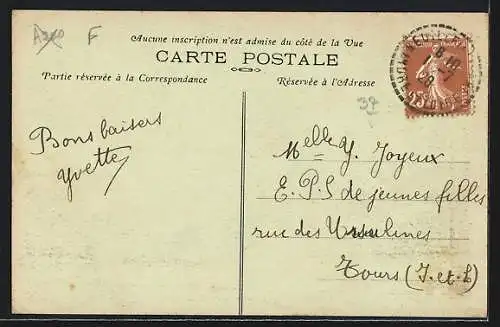 F
Aucune inscription n'est admise du côté de la Vue
CARTE POSTALE
Partie réservée à la Correspondance
Réservée à l'Adresse
37
Bons baisers
Yvette
Melle Y. Joyeux
E. P. S de jeunes filles
rue des Ursulines
Tours (I.-et-L)